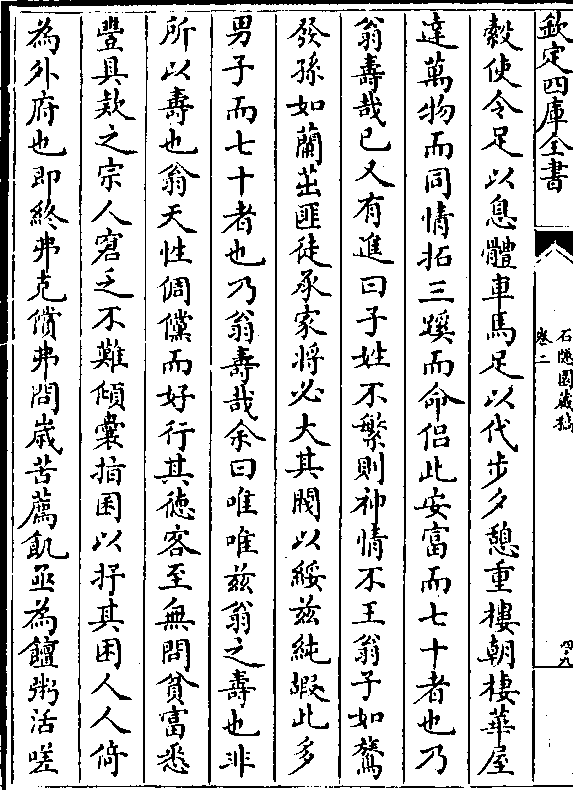 欽定四庫全書
石隱園藏稿
卷二
四十九
縠使令足以息體車馬足以代步夕憩重樓朝棲華屋
達萬物而同情拓三蹊而命侣此安富而七十者也乃
翁壽哉已又有進曰子姓不繁則神情不王翁子如鵞
發孫如蘭茁匪徒承家將必大其閥以綏兹純嘏此多
男子而七十者也乃翁壽哉余曰唯唯兹翁之壽也非
所以壽也翁天性倜儻而好行其徳客至無問貧富悉
豐具欵之宗人窘乏不難傾囊指囷以抒其困人人倚
為外府也即終弗克償弗問嵗苦薦飢亟為饘粥活嗟